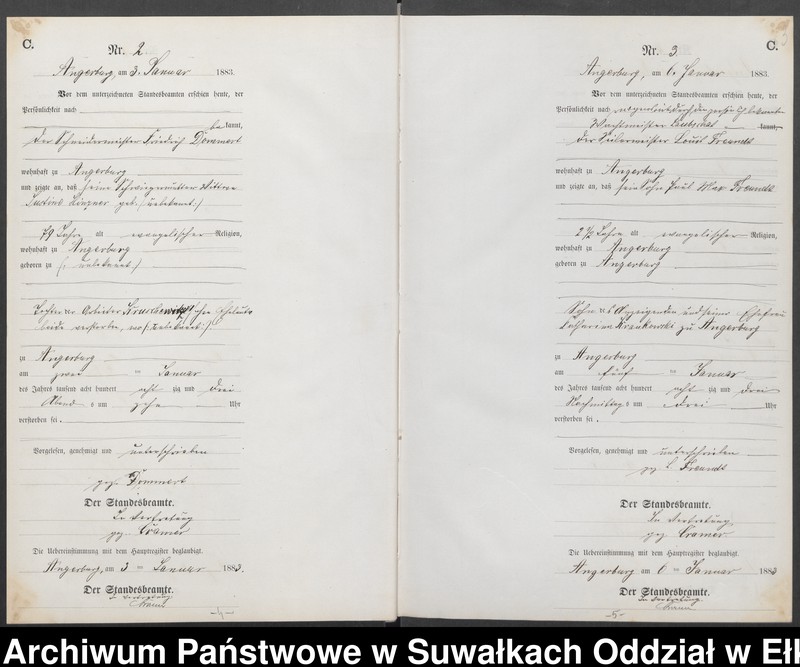 C.
Nr. 2
Angerburg, am 3. Januar 1883.
Vor dem unterzeichneten Standesbeamten erschien heute, der
Persönlichkeit nach
be kannt,
der Schneidermeister Friedrich Dommert
wohnhaft zu Angerburg
und zeigte an, daß seine Schwiegermutter Wittwe
geb. (: unbekannt :)
79 Jahre alt evangelischer Religion,
wohnhaft zu Angerburg
geboren zu (: unbekannt :)
Tochter der Arbeiter Eheleute
beide verstorben, wo (: unbekannt :)
zu Angerburg
am zwei ten Januar
des Jahres tausend acht hundert acht zig und drei
Abends um zehn Uhr
verstorben sei.
Vorgelesen, genehmigt und unterschrieben
gez. Dommert
Der Standesbeamte.
In Vertretung
gez. Cramer
Die Uebereinstimmung mit dem Hauptregister beglaubigt.
Angerburg, am 3 ten Januar 1883.
Der Standesbeamte.
In Vertretung
Cramer
-4-
C.
Nr. 3
Angerburg, am 6. Januar 1883.
Vor dem unterzeichneten Standesbeamten erschien heute, der
Persönlichkeit nach durch den
Wachtmeister kannt,
der Seilermeister Louis Freundt
wohnhaft zu Angerburg
und zeigte an, daß sein Sohn Paul Max Freundt
2 1/2 Jahre alt evangelischer Religion,
wohnhaft zu Angerburg
geboren zu Angerburg
Sohn des Anzeigenden und seiner Ehefrau
Catharina Krankowski zu Angerburg
zu Angerburg
am fünf ten Januar
des Jahres tausend acht hundert acht zig und drei
Nachmittags um drei Uhr
verstorben sei.
Vorgelesen, genehmigt und unterschrieben
gez. L. Freundt
Der Standesbeamte.
In Vertretung
gez. Cramer
Die Uebereinstimmung mit dem Hauptregister beglaubigt.
Angerburg am 6 ten Januar 1883
Der Standesbeamte.
In Vertretung
Cramer
-5-
Archiwum Państwowe w Suwałkach Oddział w Eł